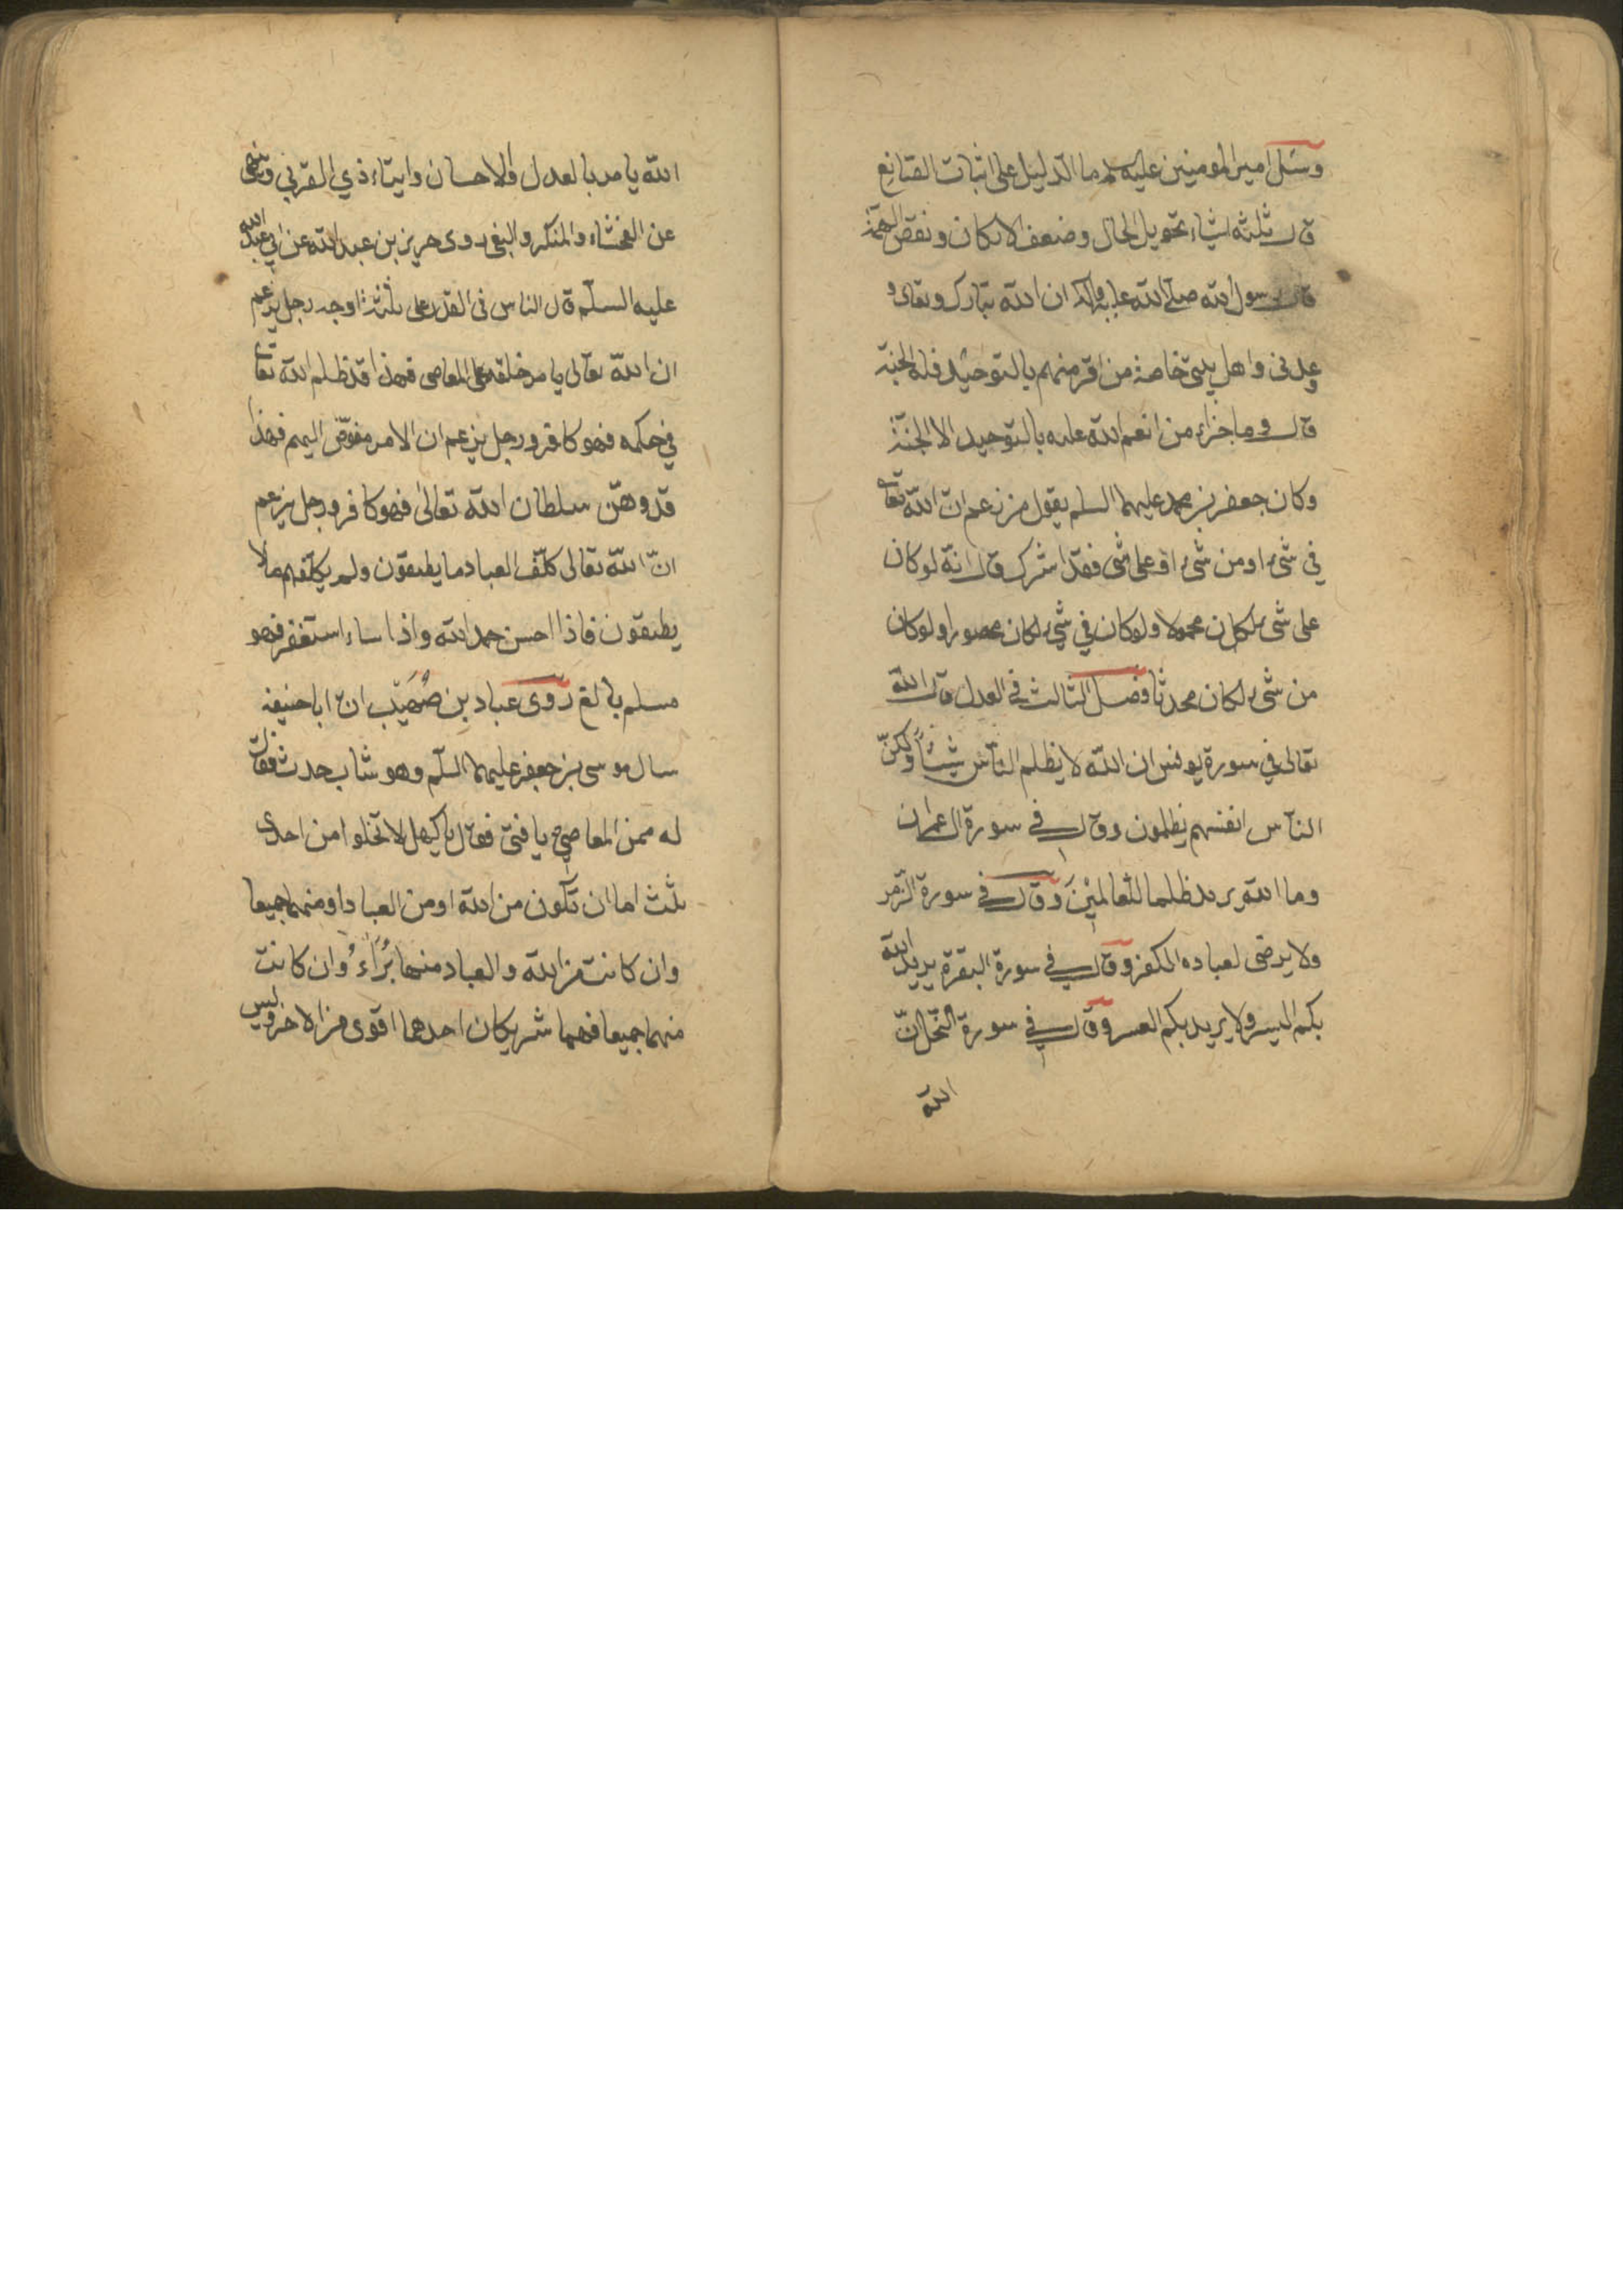 وسئل امير المومنين عليه لم ما الدليل على اثبات الصّانع
قال ثلثه اشياء تحويل الحال وضعف الاركان ونقض الهمّة
قال رسول الله صلّے الله عليه وآله ان الله تبارك وتعالى و
وعدنى واهل بيتى خاصة من اقر منهم بالتوحيد فله الجنة
قال وما جزاء من انعم الله عليه بالتوحيد الا الجنّة
وكان جعفر بن محمد عليهما السلم يقول من زعم انّ الله تعا
في شىء او من شىء او على شى فقد اشرك قال انّه لو كان
على شىء لكان محمولا ولو كان في شىء لكان محصورا ولو كان
من شىء لكان محدثا فصل الثالث في العدل قال الله
تعالى في سورة يونس ان الله لا يظلم النّاس شيئاً ولكنّ
النّاس انفسهم يظلمون وقال في سورة ال عمران
وما الله يريد ظلما للعالمين وقال في سورة الزّمر
ولا يرضى لعباده الكفر وقال في سورة البقرة يريد الله
بكم اليسر ولا يريد بكم العسر وقال في سورة النّحل انّ
الله
الله يامر بالعدل والاحسان وايتاء ذي القربى وينهى
عن الفحشاء والمنكر والبغى روى حريز بن عبد الله عن ابي عبد الله
عليه السلّم قال الناس فى القدر على ثلثة اوجه رجل يزعم
ان الله تعالى يامر خلقه على المعاصى فهذا قد ظلم الله تعا
في حكمه فهو كافر ورجل يزعم ان الامر مفوّض اليهم فهذا
قد وهّن سلطان الله تعالى فهو كافر ورجل يزعم
انّ الله تعالى كلّف العباد ما يطيقون ولم يكلّفهم ما لا
يطيقون فاذا احسن حمد الله واذا ساء استغفر فهو
مسلم بالغ روى عباد بن صُهَيب ان ابا حنيفه
سال موسى بن جعفر عليهما السلّم وهو شاب حدث فقال
له ممن المعاصي يا فتى فقال يا كهل لا تخلوا من احدى
ثلث اما ان تكون من الله او من العباد او منهما جميعا
وان كانت من الله والعباد منها بُرَآءُ وان كانت
منهما جميعا فهما شريكان احدهما اقوى من الاخر وليس